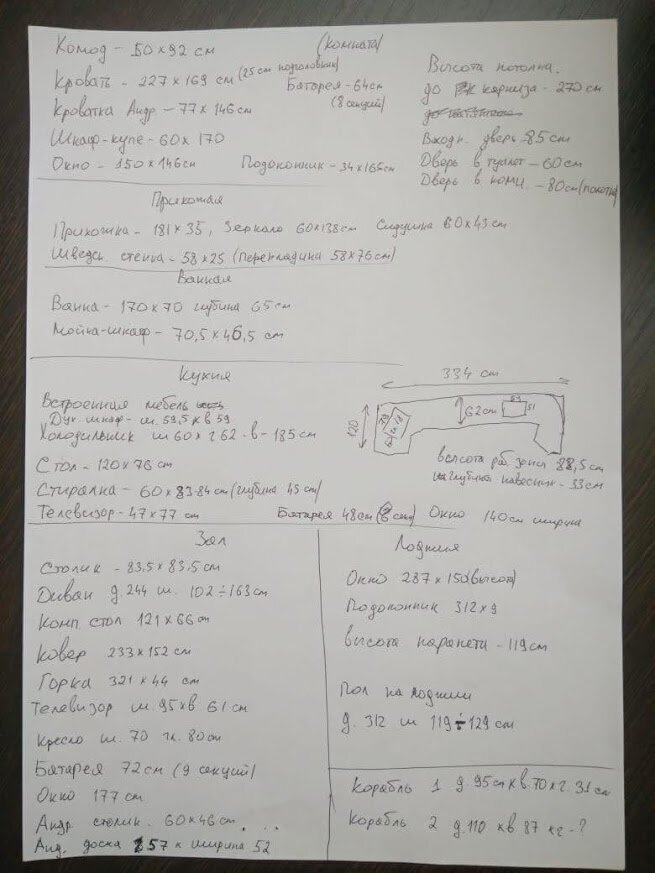 (комната)
Комод - 50 х 92 см
Кровать - 227 х 169 см (25 см подголовник)
Батарея - 64см
(8 секций)
Кроватка Андр. - 77 х 146см
Шкаф-купе - 60 х 170
Окно - 150 х 146см Подоконник - 34 х 166см
Высота потолка
до карниза - 270 см
Входн. дверь 85 см
Дверь в туалет - 60 см
Дверь в комн. - 80см (полотно)
Прихожая
Прихожка - 181 х 35, Зеркало 60х138см Сидушка 60 х 43 см
Шведск. стенка - 58 х 25 (перекладина 58 х 76 см)
Ванная
Ванна - 170 х 70 глубина 65 см
Мойка-шкаф - 70,5 х 46,5 см
Кухня
Встроенная мебель
Дух. шкаф - ш. 59,5 х в 59
Холодильник ш 60 х г 62 - в - 185 см
Стол - 120 х 76 см
Стиралка - 60 х 83-84 см (глубина 45 см)
Телевизор - 47 х 77 см Батарея 48см (6 секц) Окно 140см ширина
334 см
120
62см
51
высота раб. зоны 88,5 см
глубина навесных - 33см
Зал
Столик - 83,5 х 83,5 см
Диван д. 244 ш. 102 ÷ 163 см
Комп. стол 121 х 66 см
Ковер 233 х 152 см
Горка 321 х 44 см
Телевизор ш. 95 х в 61 см
Кресло ш. 70 гл. 80см
Батарея 72 см (9 секций)
Окно 177 см
Андр. столик. 60 х 46 см
Анд. доска 57 х ширина 52
Лоджия
Окно 287 х 150 (высота)
Подоконник 312 х 9
Высота парапета - 119 см
Пол на лоджии
д. 312 ш 119 ÷ 129 см
Корабль 1 д. 95см х в. 70 х г. 31 см
Корабль 2 д. 110 х в 87 х г - ?